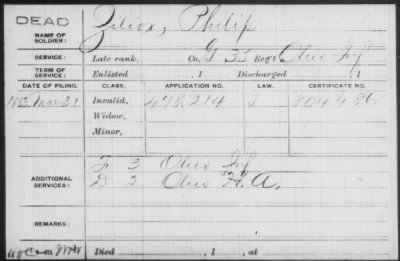 DEAD
NAME OF SOLDIER: Ziliox, Philip
SERVICE: Late rank, Co. G 35 Reg't Ohio Inf
TERM OF SERVICE: Enlisted , 1 Discharged , 1
DATE OF FILING. CLASS. APPLICATION NO. LAW. CERTIFICATE NO.
Mar 31 Invalid, 478,214 804486
Widow,
Minor,
ADDITIONAL SERVICES: F 3 Ohio Inf
D 2 Ohio H.A,
REMARKS:
Died , 1 , at